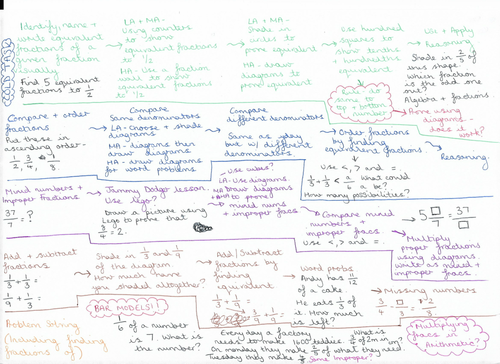 COLD TASK
Identify, name +
write equivalent
fractions of a
given fraction
visually.
Find 5 equivalent
fractions to 1/2
LA + MA -
Using counters
to show
equivalent fractions
to 1/2
HA - Use a fraction
wall to show
equivalent fractions
to 1/2
LA + MA -
Shade in
circles to
prove equivalent
HA - draw
diagrams to
prove equivalent
Use hundred
squares to
show tenths +
hundredths
equivalent
same to
top + bottom
number
Use + Apply
Reasoning
Shade in 2/5 of
this shape
Which fraction
is the odd one
one?
Algebra + fractions
Prove using
diagrams
does it
work?
Compare + order
fractions
Put these in
ascending order -
Compare
Same denominators
LA - choose + shade
diagrams
MA - diagrams then
draw diagrams
HA - draw diagrams
for word problems
Compare
different denominators
Same as yday
but w/ different
denominators
Order fractions
by finding
equivalent fractions
Use <, > and =
What could
a be?
How many possibilities?
Reasoning
Mixed numbers +
Improper fractions
37/7 = ?
Jammy Dodger lesson.
Use lego?
Draw a picture using
Lego to prove that
8/4 = 2
Use cubes?
LA - Use diagrams
HA + MA draw diagrams
to prove
mixed nums
+ improper fracs
Compare mixed
numbers +
improper fracs
Use <, > and =
5 □/7 = 37/□
Multiply
proper fractions
using diagrams
write as mixed +
improper fracs
Add + subtract
fractions
1/9 + 1/3 =
Shade in 1/3 and 1/9
of the diagram
How much have
you shaded altogether?
Add/Subtract
fractions by
finding
equivalent
Word probs
Andy has 11/12
of a cake.
He eats 1/3 of
it. How much
is left?
Missing numbers
Problem Solving
(Including finding
fractions of)
BAR MODELS!
1/6 of a number
is 7. What is
the number?
Every day a factory
needs to make 1600 teddies.
On monday they make
of what they need
Tuesday they make
What is
of 2m in
cm?
Same Improper
Multiplying
fracs in
Arithmetic?